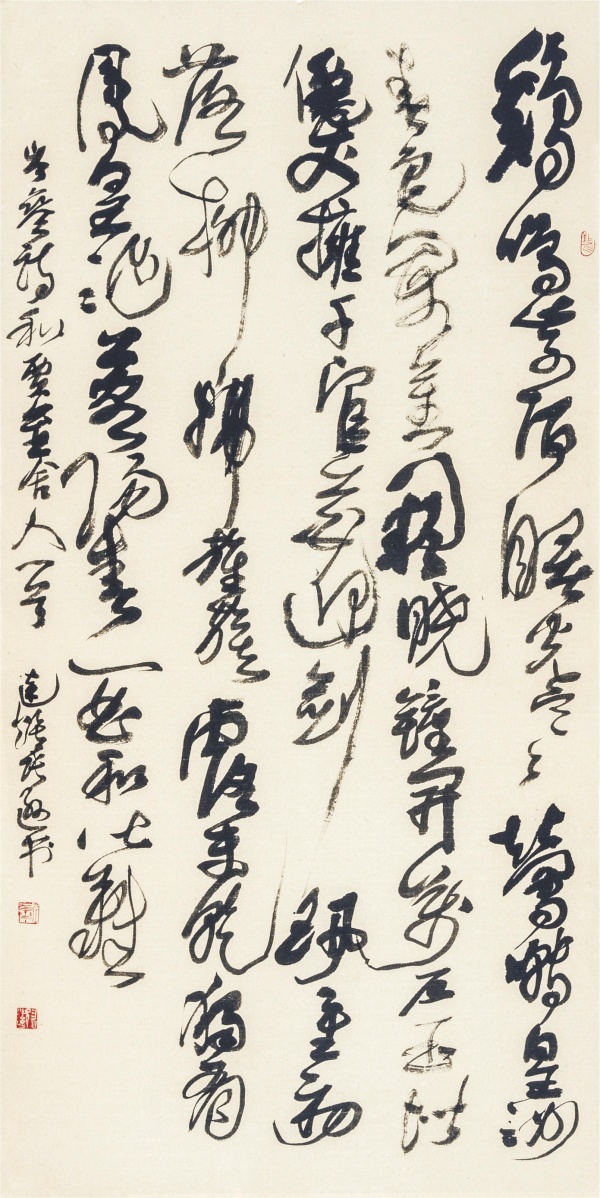 鷄鳴紫陌曙光寒鶯囀皇州
春色闌金闕曉鐘開萬户玉階
僊仗擁千官花迎劍珮星初
落柳拂旌旗露未乾獨有
鳳皇池上客陽春一曲和皆難
岑參詩和賈至舍人一首 書